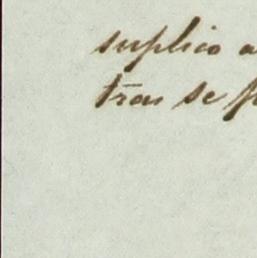 suplico a
tras se p